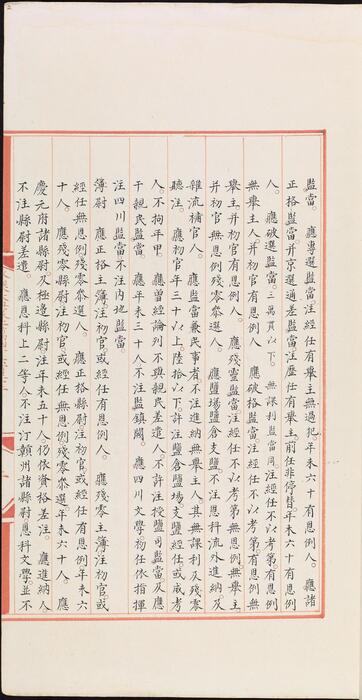 監當。應專選監當注經任有舉主無過犯年未六十有恩例人。應諸
正格監當。并京選通差監當注歷任有舉主。前任非停替。年未六十有恩例
人。應破選監當。三萬貫以下。無課利監當同。注經任不以考第。有恩例
無舉主人并初官有恩例人。應破格監當注經任不以考第。有恩例無
舉主。并初官有恩例人。應殘零監當注經任不以考第無恩例無舉主
并初官無恩例殘零參選人。應鹽場鹽倉支鹽不注恩科流外進納及
雜流補官人。應監當兼民事者不注進納無舉主人。其無課利及殘零
聽注。應初官年三十以上陸拾以下。許注鹽倉鹽場支鹽經任或成考
人。不拘年甲。應曾經論列不與親民差遣人。不許注授鹽司監當及應
干親民監當。應年未三十人不注監鎮闕。應四川文學。初任依指揮
注四川監當不注内地監當
簿尉。應正格主簿注初官或經任有恩例人。應殘零主簿注初官或
經任無恩例殘零參選人。應正格縣尉注初官。或經任有恩例年未六
十人。應殘零縣尉注初官或經任無恩例殘零參選年未六十人。應
慶元府諸縣尉及極邊縣尉注年未五十人仍依資格差注。應進納人
不注縣尉差遣。應恩科上二等人不注汀贛州諸縣尉恩科文學。並不